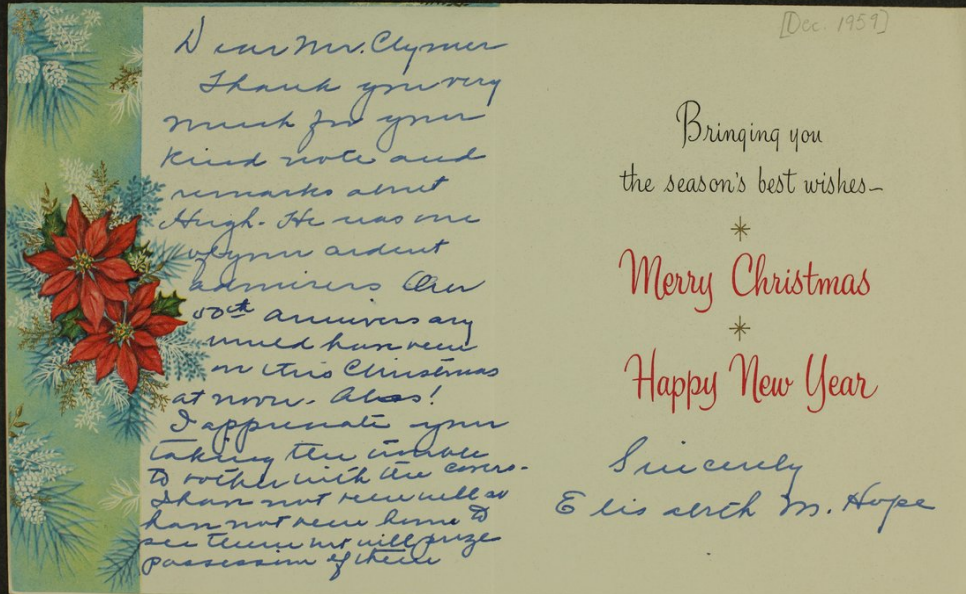 Dear Mr. Clymer
Thank you very
much for your
kind note and
remarks about
Hugh. He was one
of your ardent
admirers Our
50th anniversary
would have been
on this Christmas
at noon. Alas!
I appreciate your
taking the trouble
to bother with the covers.
I have not been well so
have not been home to
see them but will prize
possession of them
[Dec. 1959]
Bringing you
the season's best wishes–
Merry Christmas
Happy New Year
Sincerely
Elisabeth M. Hope